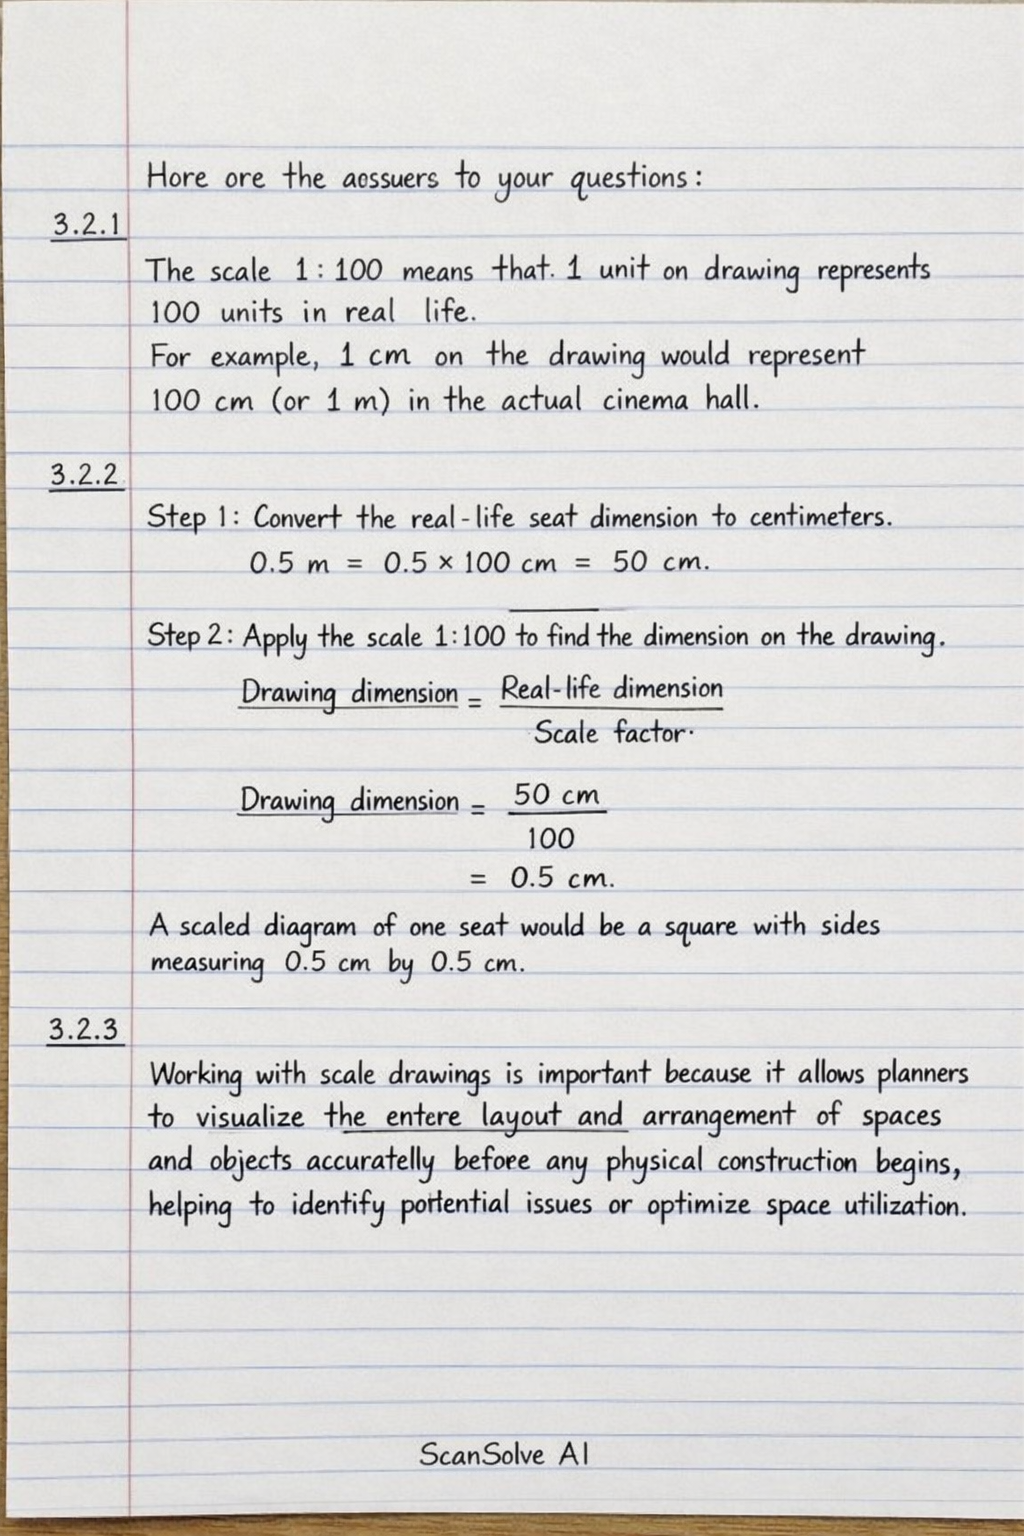 Hore ore the aossuers to your questions:
3.2.1
The scale 1 : 100 means that. 1 unit on drawing represents
100 units in real life.
For example, 1 cm on the drawing would represent
100 cm (or 1 m) in the actual cinema hall.
3.2.2
Step 1: Convert the real-life seat dimension to centimeters.
0.5 m = 0.5 × 100 cm = 50 cm.
Step 2: Apply the scale 1:100 to find the dimension on the drawing.
Drawing dimension = Real-life dimension
Scale factor.
Drawing dimension = 50 cm
100
= 0.5 cm.
A scaled diagram of one seat would be a square with sides
measuring 0.5 cm by 0.5 cm.
3.2.3
Working with scale drawings is important because it allows planners
to visualize the entere layout and arrangement of spaces
and objects accuratelly before any physical construction begins,
helping to identify portential issues or optimize space utilization.
ScanSolve AI